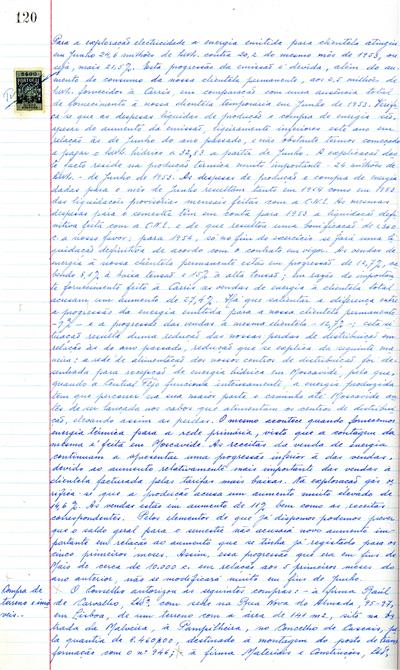 120
Para a exploração electricidade a energia emitida para clientela atingiu
em Junho 24,6 milhões de kwh. contra 20,2 do mesmo mês de 1953, ou
seja, mais 21,5%. Esta progressão da emissão é devida, além do au-
mento do consumo da nossa clientela permanente, aos 2,5 milhões de
kwh. fornecidos à Carris, em comparação com uma ausência total
de fornecimento à nossa clientela temporária em Junho de 1953. Verifi-
ca-se que as despesas líquidas de produção e compra de energia são,
apesar do aumento da emissão, ligeiramente inferiores este ano em
relação às de Junho do ano passado, e não obstante termos começado
a pagar o kwh. hídrico a a partir de Junho. A explicação des-
te facto reside na produção térmica muito importante
kwh. - de Junho de 1953. As despesas de produção e compra de energia
dadas para o mês de Junho resultam tanto em 1954 como em 1953
das liquidações provisórias mensais feitas com a C.N.E. As mesmas
despesas para o semestre têm em conta para 1953 a liquidação defi-
nitiva feita com a C.N.E. e de que resultou uma bonificação de
c. a nosso favor; para 1954, só no fim do exercício se fará uma li-
quidação definitiva de acordo com o contrato em vigor. As vendas de
energia à nossa clientela permanente estão em progressão de 12,7%, ca-
bendo 8,1% à baixa tensão e 15% à alta tensão; em razão do importan-
te fornecimento feito à Carris as vendas de energia à clientela total
acusam um aumento de 27,4%. Há que salientar a diferença entre
a progressão da energia emitida para a nossa clientela permanente
-7%- e a progressão das vendas à mesma clientela -12,7%-; esta si-
tuação resulta duma redução das nossas perdas de distribuição em
relação às do ano passado, redução que se explica da seguinte ma-
neira: a rede de alimentação dos nossos centros de distribuição foi de-
senhada para recepção de energia hídrica em Moscavide, pelo que,
quando a Central Tejo funciona intensamente, a energia produzida
tem que percorrer na sua maior parte o caminho até Moscavide an-
tes de ser lançada nos cabos que alimentam os centros de distribui-
ção, elevando assim as perdas. O mesmo acontece quando fornecemos
energia térmica para a rede primária, visto que a contagem da
mesma é feita em Moscavide. As receitas da venda de energia
continuam a apresentar uma progressão inferior à das vendas,
devido ao aumento relativamente mais importante das vendas à
clientela facturada pelas tarifas mais baixas. Na exploração gás ve-
rifica-se que a produção acusa um aumento muito elevado de
14,6%. As vendas estão em aumento de 11% bem como as receitas
correspondentes. Pelos elementos de que já dispomos podemos prever
que o saldo geral para o semestre não acusará novo aumento im-
portante em relação ao aumento que se tinha já registado para os
cinco primeiros meses. Assim, essa progressão que era em fins de
Maio de cerca de 10.000 c. em relação aos 5 primeiros meses do
ano anterior, não se modificará muito em fins de Junho.
Compra de
terreno e imó-
veis.-
O Conselho autorizou as seguintes compras: - à firma Raúl
de Carvalho, Ldª. com sede na Rua Nova do Almada, 75-77,
em Lisboa, de um terreno com a área de 141 m2, sito na Es-
trada da Malveira, à Pampilheira, no Concelho de Cascais, pe-
la quantia de 8.460$00, destinado a montagem do posto de trans-
formação com o nº 946; - à firma Materiais e Construções, Ldª,